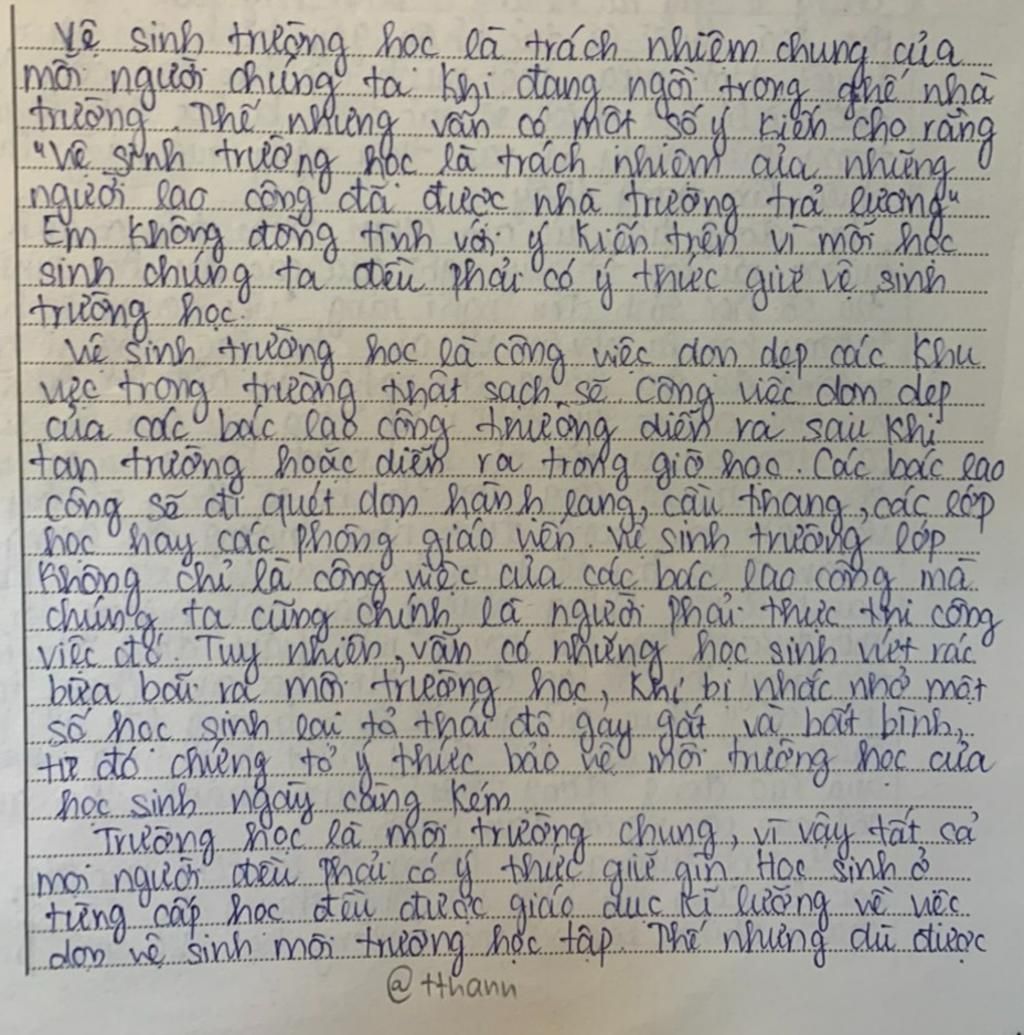 Vệ sinh trường học là trách nhiệm chung của
mỗi người chúng ta khi đang ngồi trong ghế nhà
trường. Thế nhưng vẫn có một số ý kiến cho rằng
"Vệ sinh trường học là trách nhiệm của những
người lao công đã được nhà trường trả lương"
Em không đồng tình với ý kiến trên vì mỗi học
sinh chúng ta đều phải có ý thức giữ vệ sinh
trường học.
Vệ sinh trường học là công việc dọn dẹp các khu
vực trong trường thật sạch sẽ. Công việc dọn dẹp
của các bác lao công thường diễn ra sau khi
tan trường hoặc diễn ra trong giờ học. Các bác lao
công sẽ đi quét dọn hành lang, cầu thang, các lớp
học hay các phòng giáo viên. Vệ sinh trường lớp
không chỉ là công việc của các bác lao công mà
chúng ta cũng chính là người phải thực thi công
việc đó. Tuy nhiên, vẫn có những học sinh vứt rác
bừa bãi ra môi trường học, khi bị nhắc nhở một
số học sinh lại tỏ thái độ gay gắt và bất bình,
từ đó chứng tỏ ý thức bảo vệ môi trường học của
học sinh ngày càng kém
Trường học là môi trường chung, vì vậy tất cả
mọi người đều phải có ý thức giữ gìn. Học sinh ở
từng cấp học đều được giáo dục kĩ lưỡng về việc
dọn vệ sinh môi trường học tập. Thế nhưng dù được
@tthann